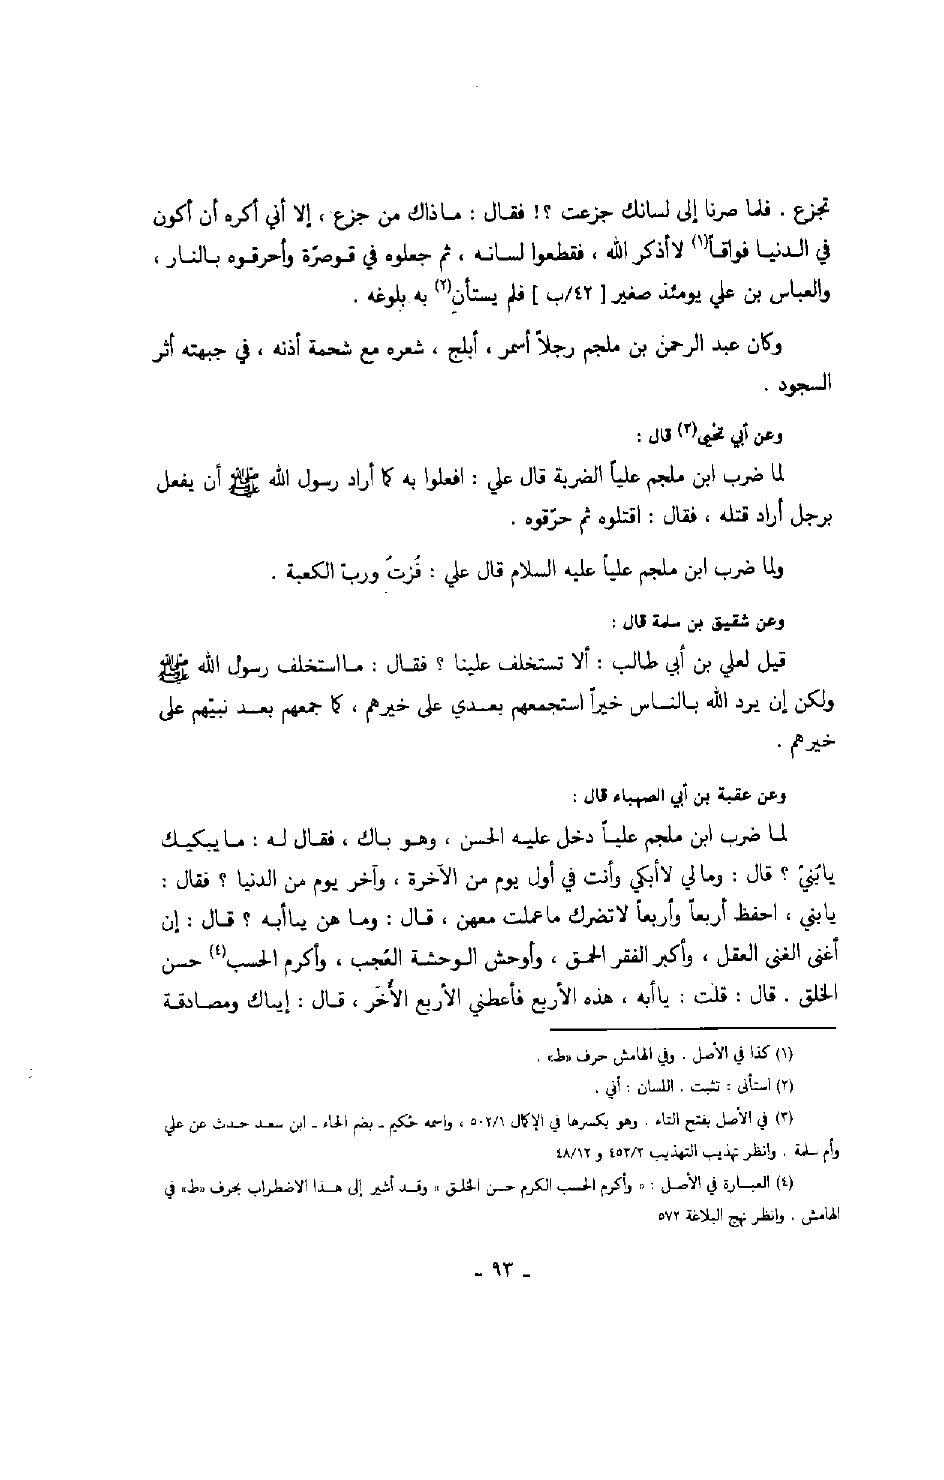 تجزع . فلما صرنا إلى لسانك جزعت ؟! فقال : ماذاك من جزع ، إلا أني أكره أن أكون
في الدنيا فواقاً(١) لاأذكر الله ، فقطعوا لسانه ، ثم جعلوه في قوصرّة وأحرقوه بالنار ،
والعباس بن علي يومئذ صغير [ ٤٢/ب ] فلم يستأن(٢) به بلوغه .
وكان عبد الرحمن بن ملجم رجلاً أسمر ، أبلج ، شعره مع شحمة أذنه ، في جبهته أثر
السجود .
وعن أبي تحيى(٣) قال :
لما ضرب ابن ملجم علياً الضربة قال علي : افعلوا به كما أراد رسول الله ﷺ أن يفعل
برجل أراد قتله ، فقال : اقتلوه ثم حرّقوه .
ولما ضرب ابن ملجم علياً عليه السلام قال علي : فُزتُ وربّ الكعبة .
وعن شقيق بن سلمة قال :
قيل لعلي بن أبي طالب : ألا تستخلف علينا ؟ فقال : مااستخلف رسول الله ﷺ
ولكن إن يرد الله بالناس خيراً استجمعهم بعدي على خيرهم ، كما جمعهم بعد نبيّهم على
خيرهم .
وعن عقبة بن أبي الصهباء قال :
لما ضرب ابن ملجم علياً دخل عليه الحسن ، وهو باك ، فقال له : مايبكيك
يابُنيّ ؟ قال : ومالي لاأبكي وأنت في أول يوم من الآخرة ، وآخر يوم من الدنيا ؟ فقال :
يابني ، احفظ أربعاً وأربعاً لاتضرك ماعملت معهن ، قال : وما هن ياأبه ؟ قال : إن
أغنى الغنى العقل ، وأكبر الفقر الحمق ، وأوحش الوحشة العُجب ، وأكرم الحسب(٤) حسن
الخلق . قال : قلت : ياأبه ، هذه الأربع فأعطني الأربع الأُخَر ، قال : إياك ومصادقة
(١) كذا في الأصل . وفي الهامش حرف «ط» .
(٢) استأنى : تثبت . اللسان : أني .
(٣) في الأصل بفتح التاء . وهو بكسرها في الإكمال ٥٠٢/١ ، واسمه حُكيم ـ بضم الحاء ـ ابن سعد حدث عن علي
وأم سلمة . وانظر تهذيب التهذيب ٤٥٣/٢ و ٤٨/١٢
(٤) العبارة في الأصل : « وأكرم الحسب الكرم حسن الخلق » وقد أشير إلى هذا الاضطراب بحرف «ط» في
الهامش . وانظر نهج البلاغة ٥٧٢
ـ ٩٣ ـ